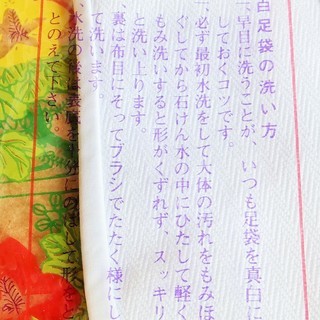 白足袋の洗い方
一、早目に洗うことが、いつも足袋を真白に
しておくコツです。
一、必ず最初水洗をして大体の汚れをもみほ
ぐしてから石けん水の中にひたして軽く
もみ洗いすると形がくずれず、スッキリ
と洗い上ります。
一、裏は布目にそってブラシでたたく様にし
て洗います。
一、水洗の後は裏底を
にのばして形をと
とのえて下さい。